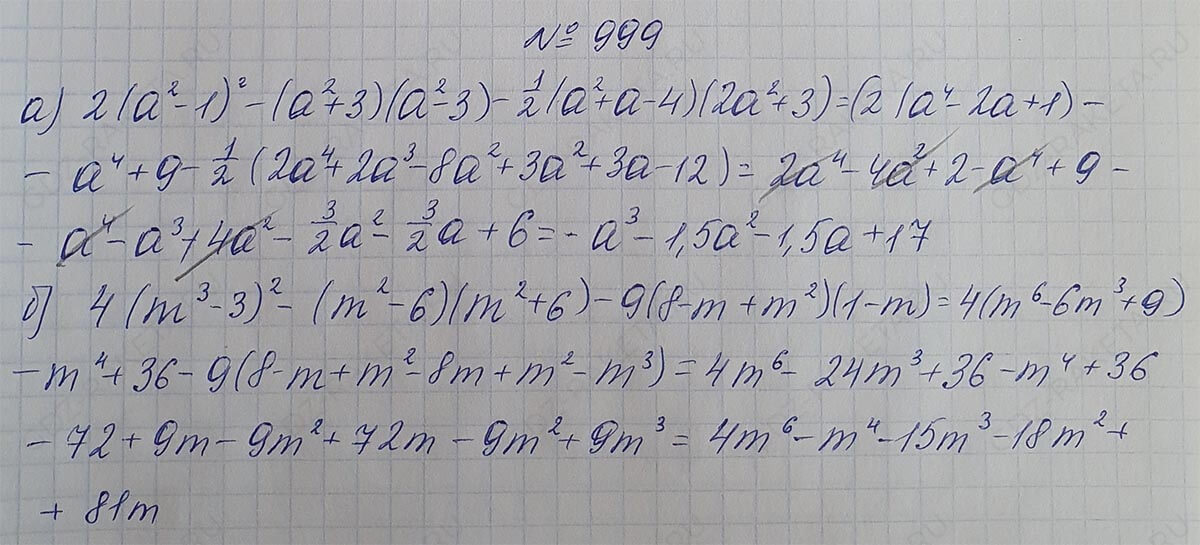 № 999
а) 2(a²-1)²-(a²+3)(a²-3)-½(a²+a-4)(2a²+3)=(2(a⁴-2a+1)-
- a⁴+9-½(2a⁴+2a³-8a²+3a²+3a-12)=2a⁴-4a²+2-a⁴+9-
- a⁴-a³+4a²-3/2a²-3/2a+6=-a³-1,5a²-1,5a+17
б) 4(m³-3)²-(m²-6)(m²+6)-9(8-m+m²)(1-m)=4(m⁶-6m³+9)
-m⁴+36-9(8-m+m²-8m+m²-m³)=4m⁶-24m³+36-m⁴+36
-72+9m-9m²+72m-9m²+9m³=4m⁶-m⁴-15m³-18m²+
+ 81m